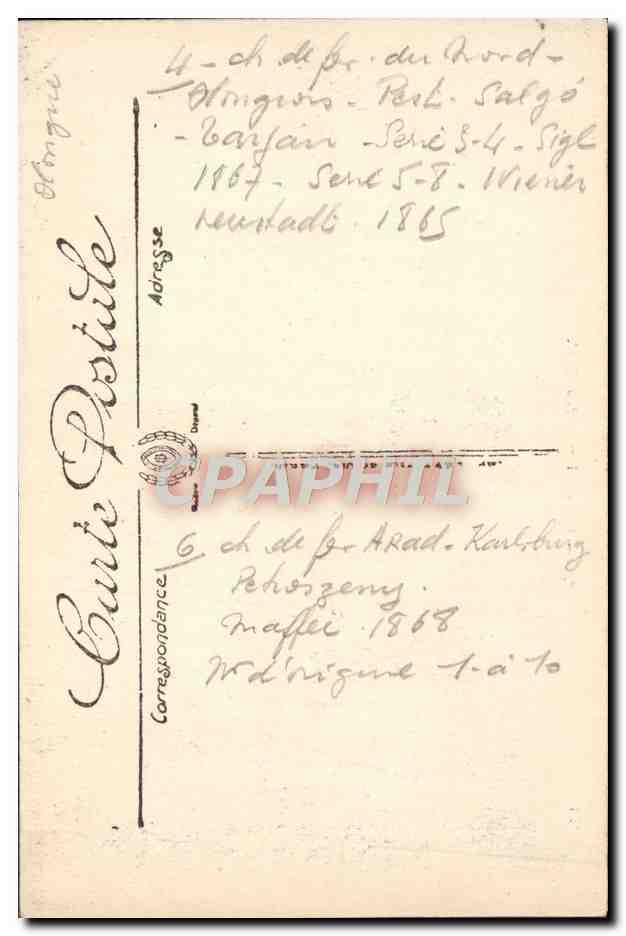 Hongrie
4 - ch de fer du Nord-
Hongrois - Pest - Salgó
- Tarján - Serie 3-4 - Sigl
1867 - Serie 5-8 - Wiener
neustadt - 1865
Carte Postale
Adresse
Correspondance
CPAPHIL
6 ch de fer ARad - Karlsburg
Petroszeny.
Maffei - 1868
N° d'origine 1 à 10